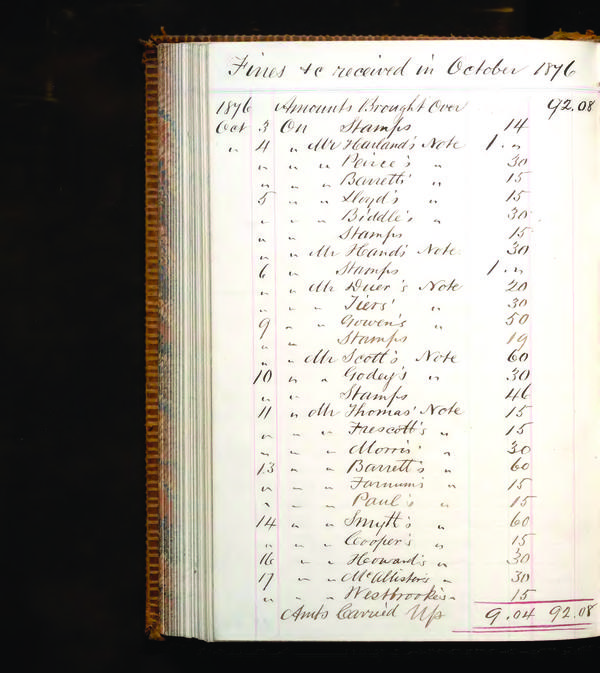 Fines &c received in October 1876
1876 Amounts Brought Over 92.08
Oct 3 On Stamps 14
" 4 " Mr Harland's Note 1. "
" " " Peirce's " 30
" " " Barretts' " 15
5 " " Lloyd's " 15
" " " Biddle's " 30
" " Stamps 15
" " Mr Hand's Note 30
6 " Stamps 1. "
" " Mr Duer's Note 20
" " " Tiers' " 30
9 " " Gowen's " 50
" " Stamps 19
" " Mr Scott's Note 60
10 " " Godey's " 30
" " Stamps 46
11 " Mr Thomas' Note 15
" " " Prescott's " 15
" " " Morris' " 30
13 " " Barrett's " 60
" " " Farnum's " 15
" " " Paul's " 15
14 " " Smyth's " 60
" " " Cooper's " 15
16 " " Howard's " 30
17 " " McAllister's " 30
" " " Westbrook's " 15
Amts Carried Up 9.04 92.08